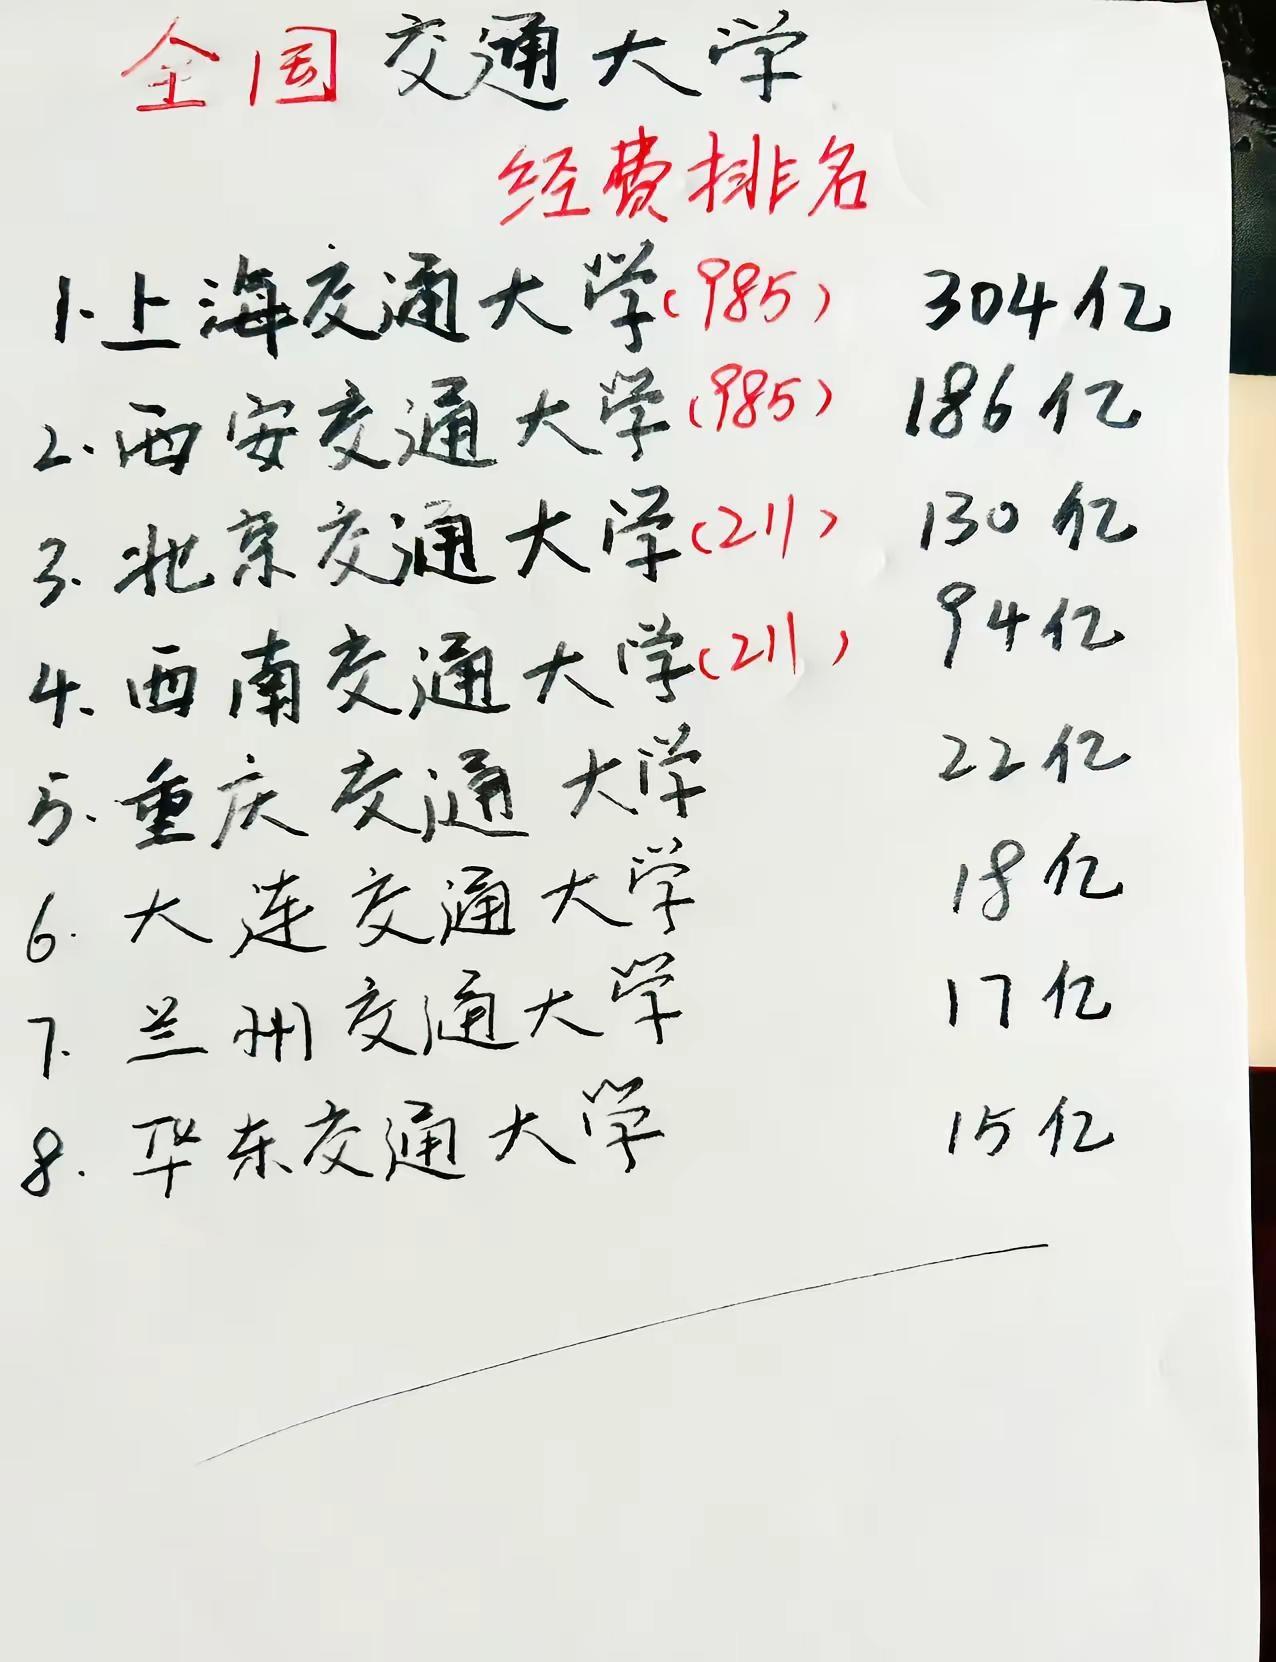 全国交通大学
经费排名
1.上海交通大学(985) 304亿
2.西安交通大学(985) 186亿
3.北京交通大学(211) 130亿
4.西南交通大学(211) 94亿
5.重庆交通大学 22亿
6.大连交通大学 18亿
7.兰州交通大学 17亿
8.华东交通大学 15亿